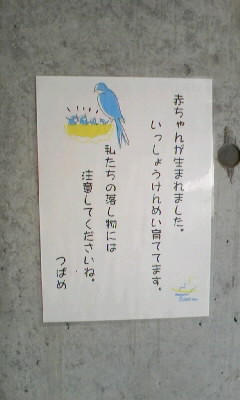 赤ちゃんが生まれました。
いっしょうけんめい育ててます。
私たちの落し物には
注意してくださいね。
つばめ